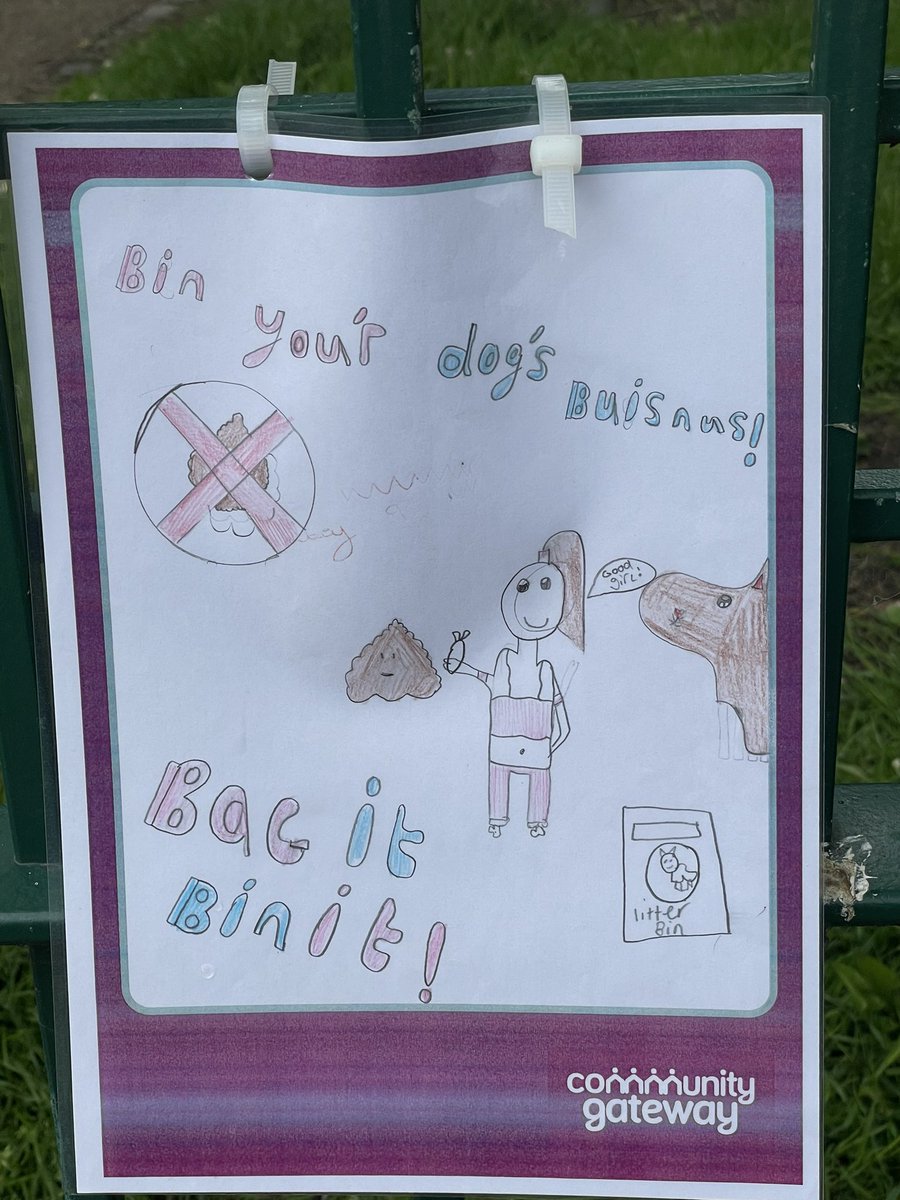 Bin
you'r dog's
Buisnus!
Good
girl!
Bag it
Bin it!
litter
Bin
community
gateway